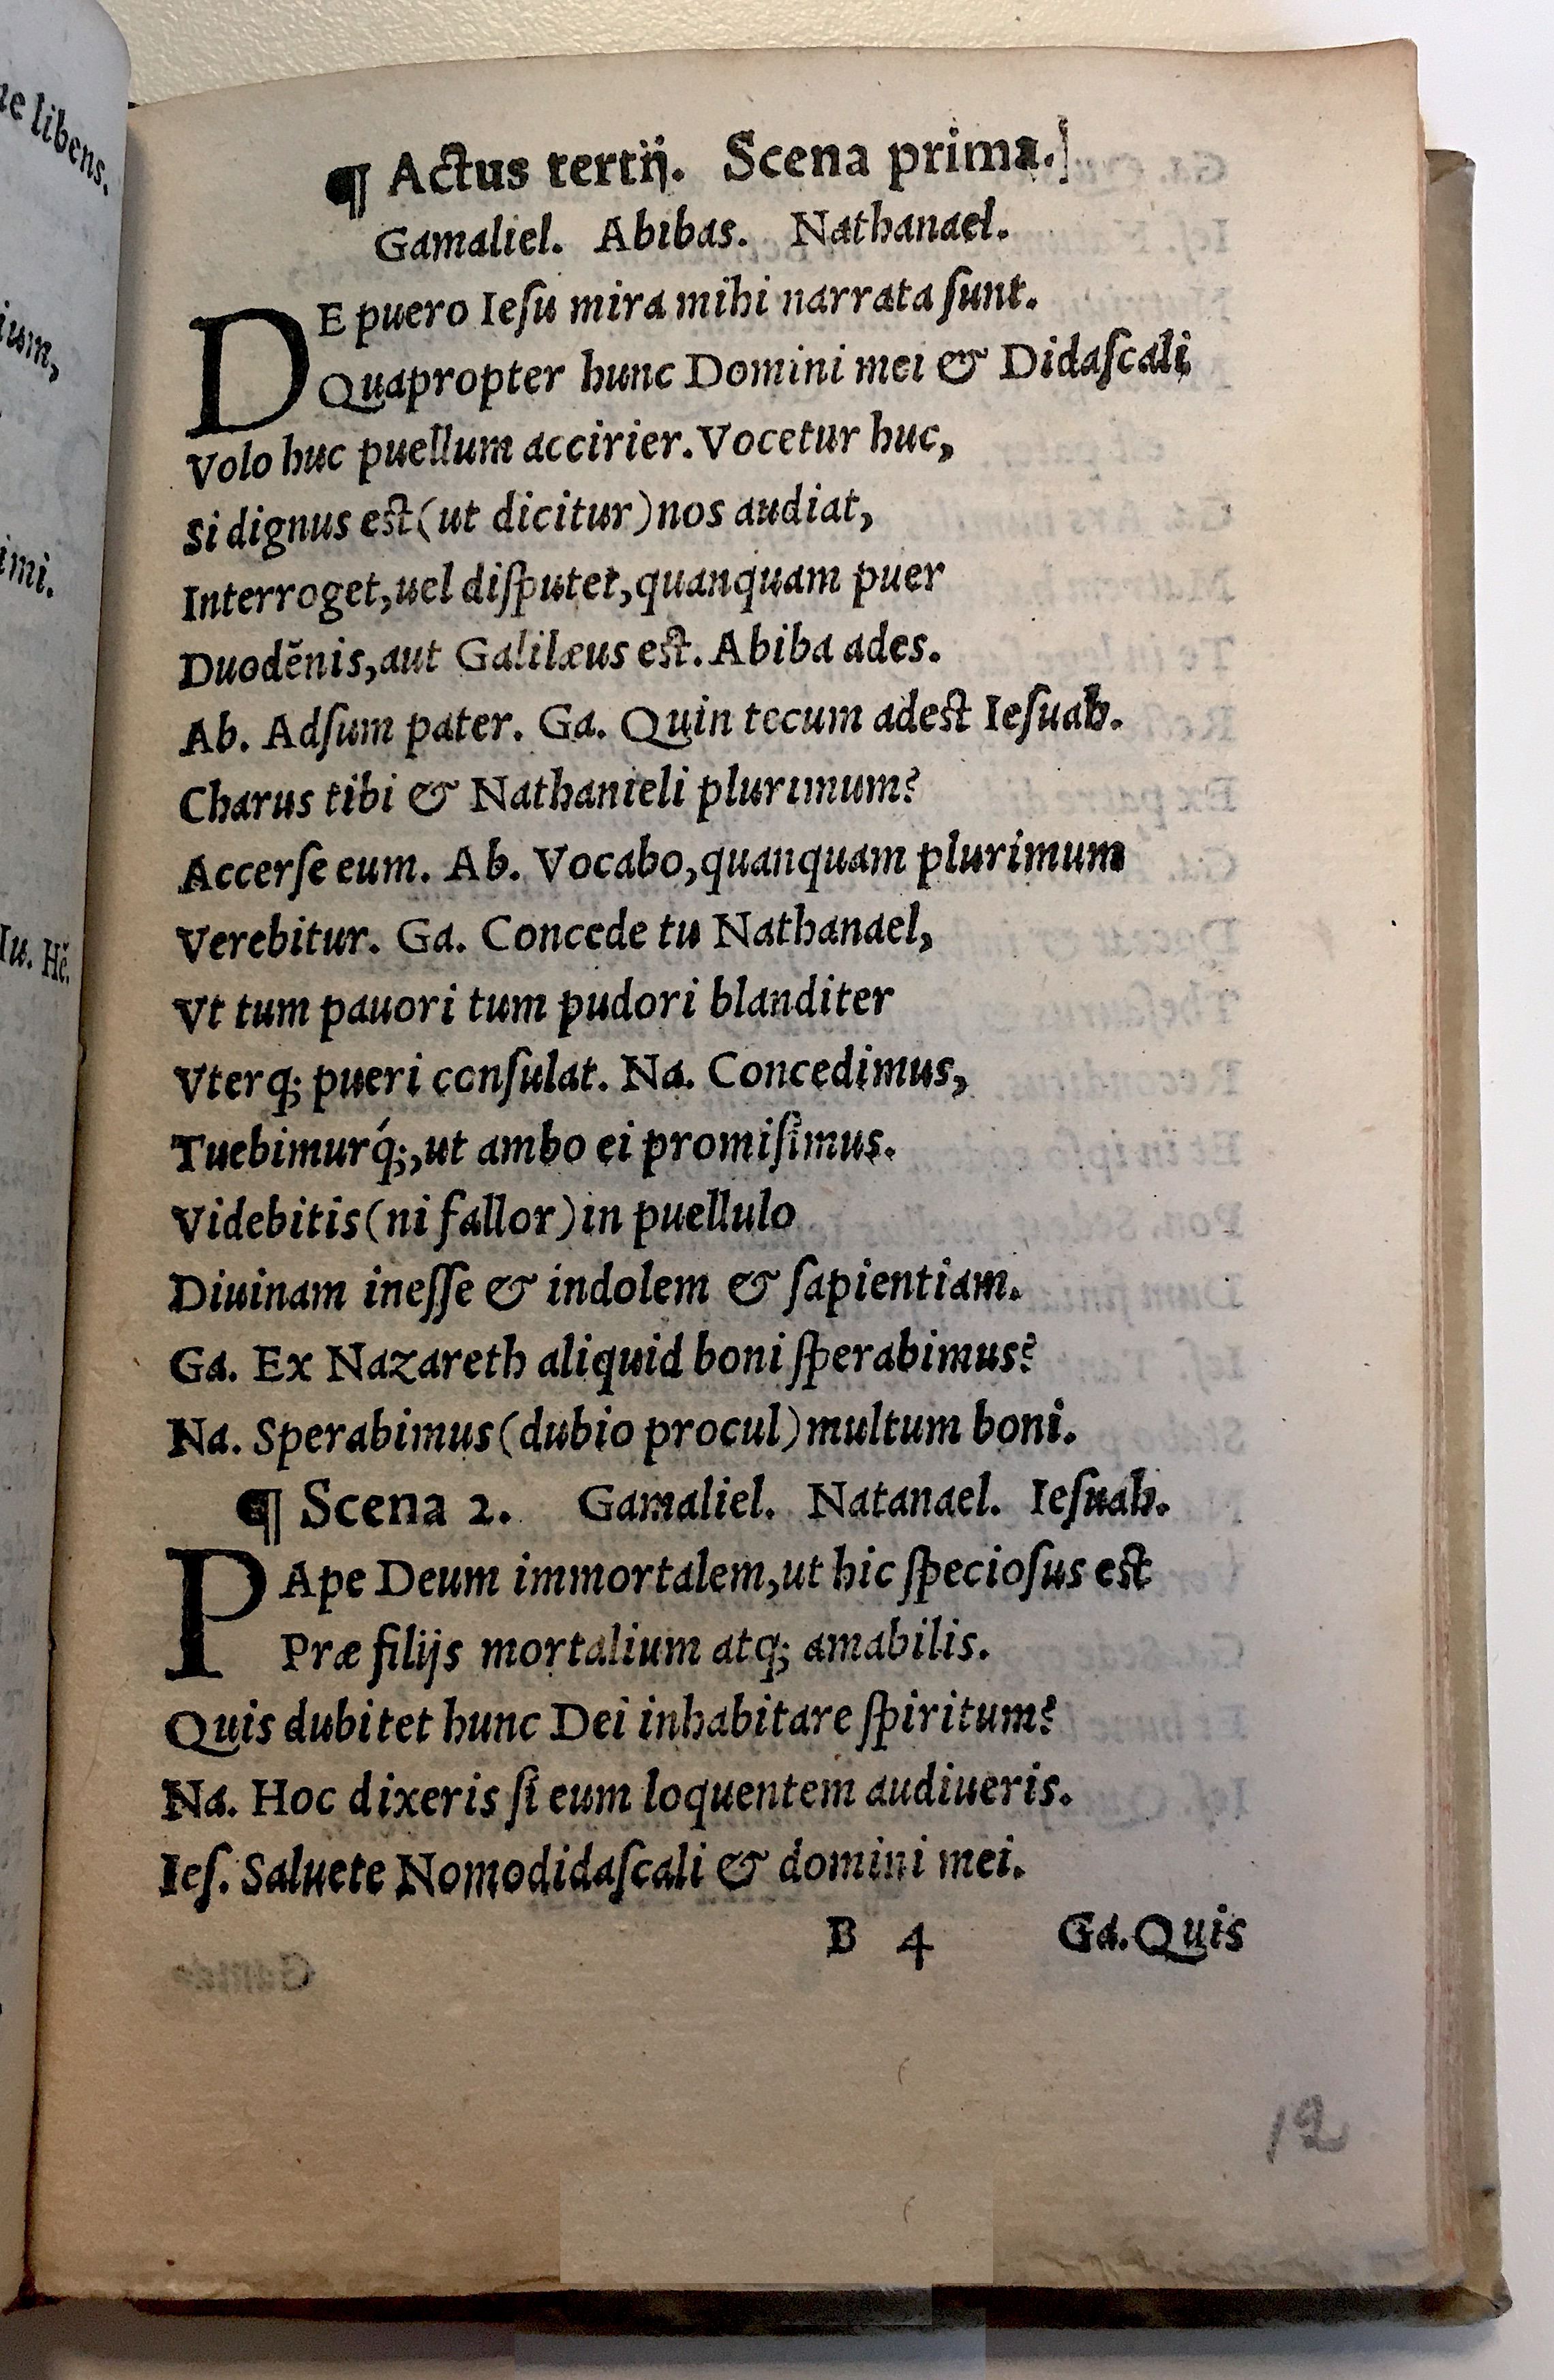 ue libens.
ium,
imi.
Iu. Hě.
¶ Actus tertij. Scena prima.
Gamaliel. Abibas. Nathanael.
DE puero Iesu mira mihi narrata sunt.
Quapropter hunc Domini mei & Didascali
Volo huc puellum accirier. Vocetur huc,
Si dignus est (ut dicitur) nos audiat,
Interroget, uel disputet, quanquam puer
Duoděnis, aut Galilæus est. Abiba ades.
Ab. Adsum pater. Ga. Quin tecum adest Iesuah.
Charus tibi & Nathanieli plurimum?
Accerse eum. Ab. Vocabo, quanquam plurimum
Verebitur. Ga. Concede tu Nathanael,
Vt tum pauori tum pudori blanditer
Vterq; pueri consulat. Na. Concedimus,
Tuebimurq́;, ut ambo ei promisimus.
Videbitis (ni fallor) in puellulo
Diuinam inesse & indolem & sapientiam.
Ga. Ex Nazareth aliquid boni sperabimus?
Na. Sperabimus (dubio procul) multum boni.
¶ Scena 2. Gamaliel. Natanael. Iesuah.
PApe Deum immortalem, ut hic speciosus est
Præ filijs mortalium atq; amabilis.
Quis dubitet hunc Dei inhabitare spiritum?
Na. Hoc dixeris si eum loquentem audiueris.
Ies. Saluete Nomodidascali & domini mei.
B 4 Ga. Quis
12